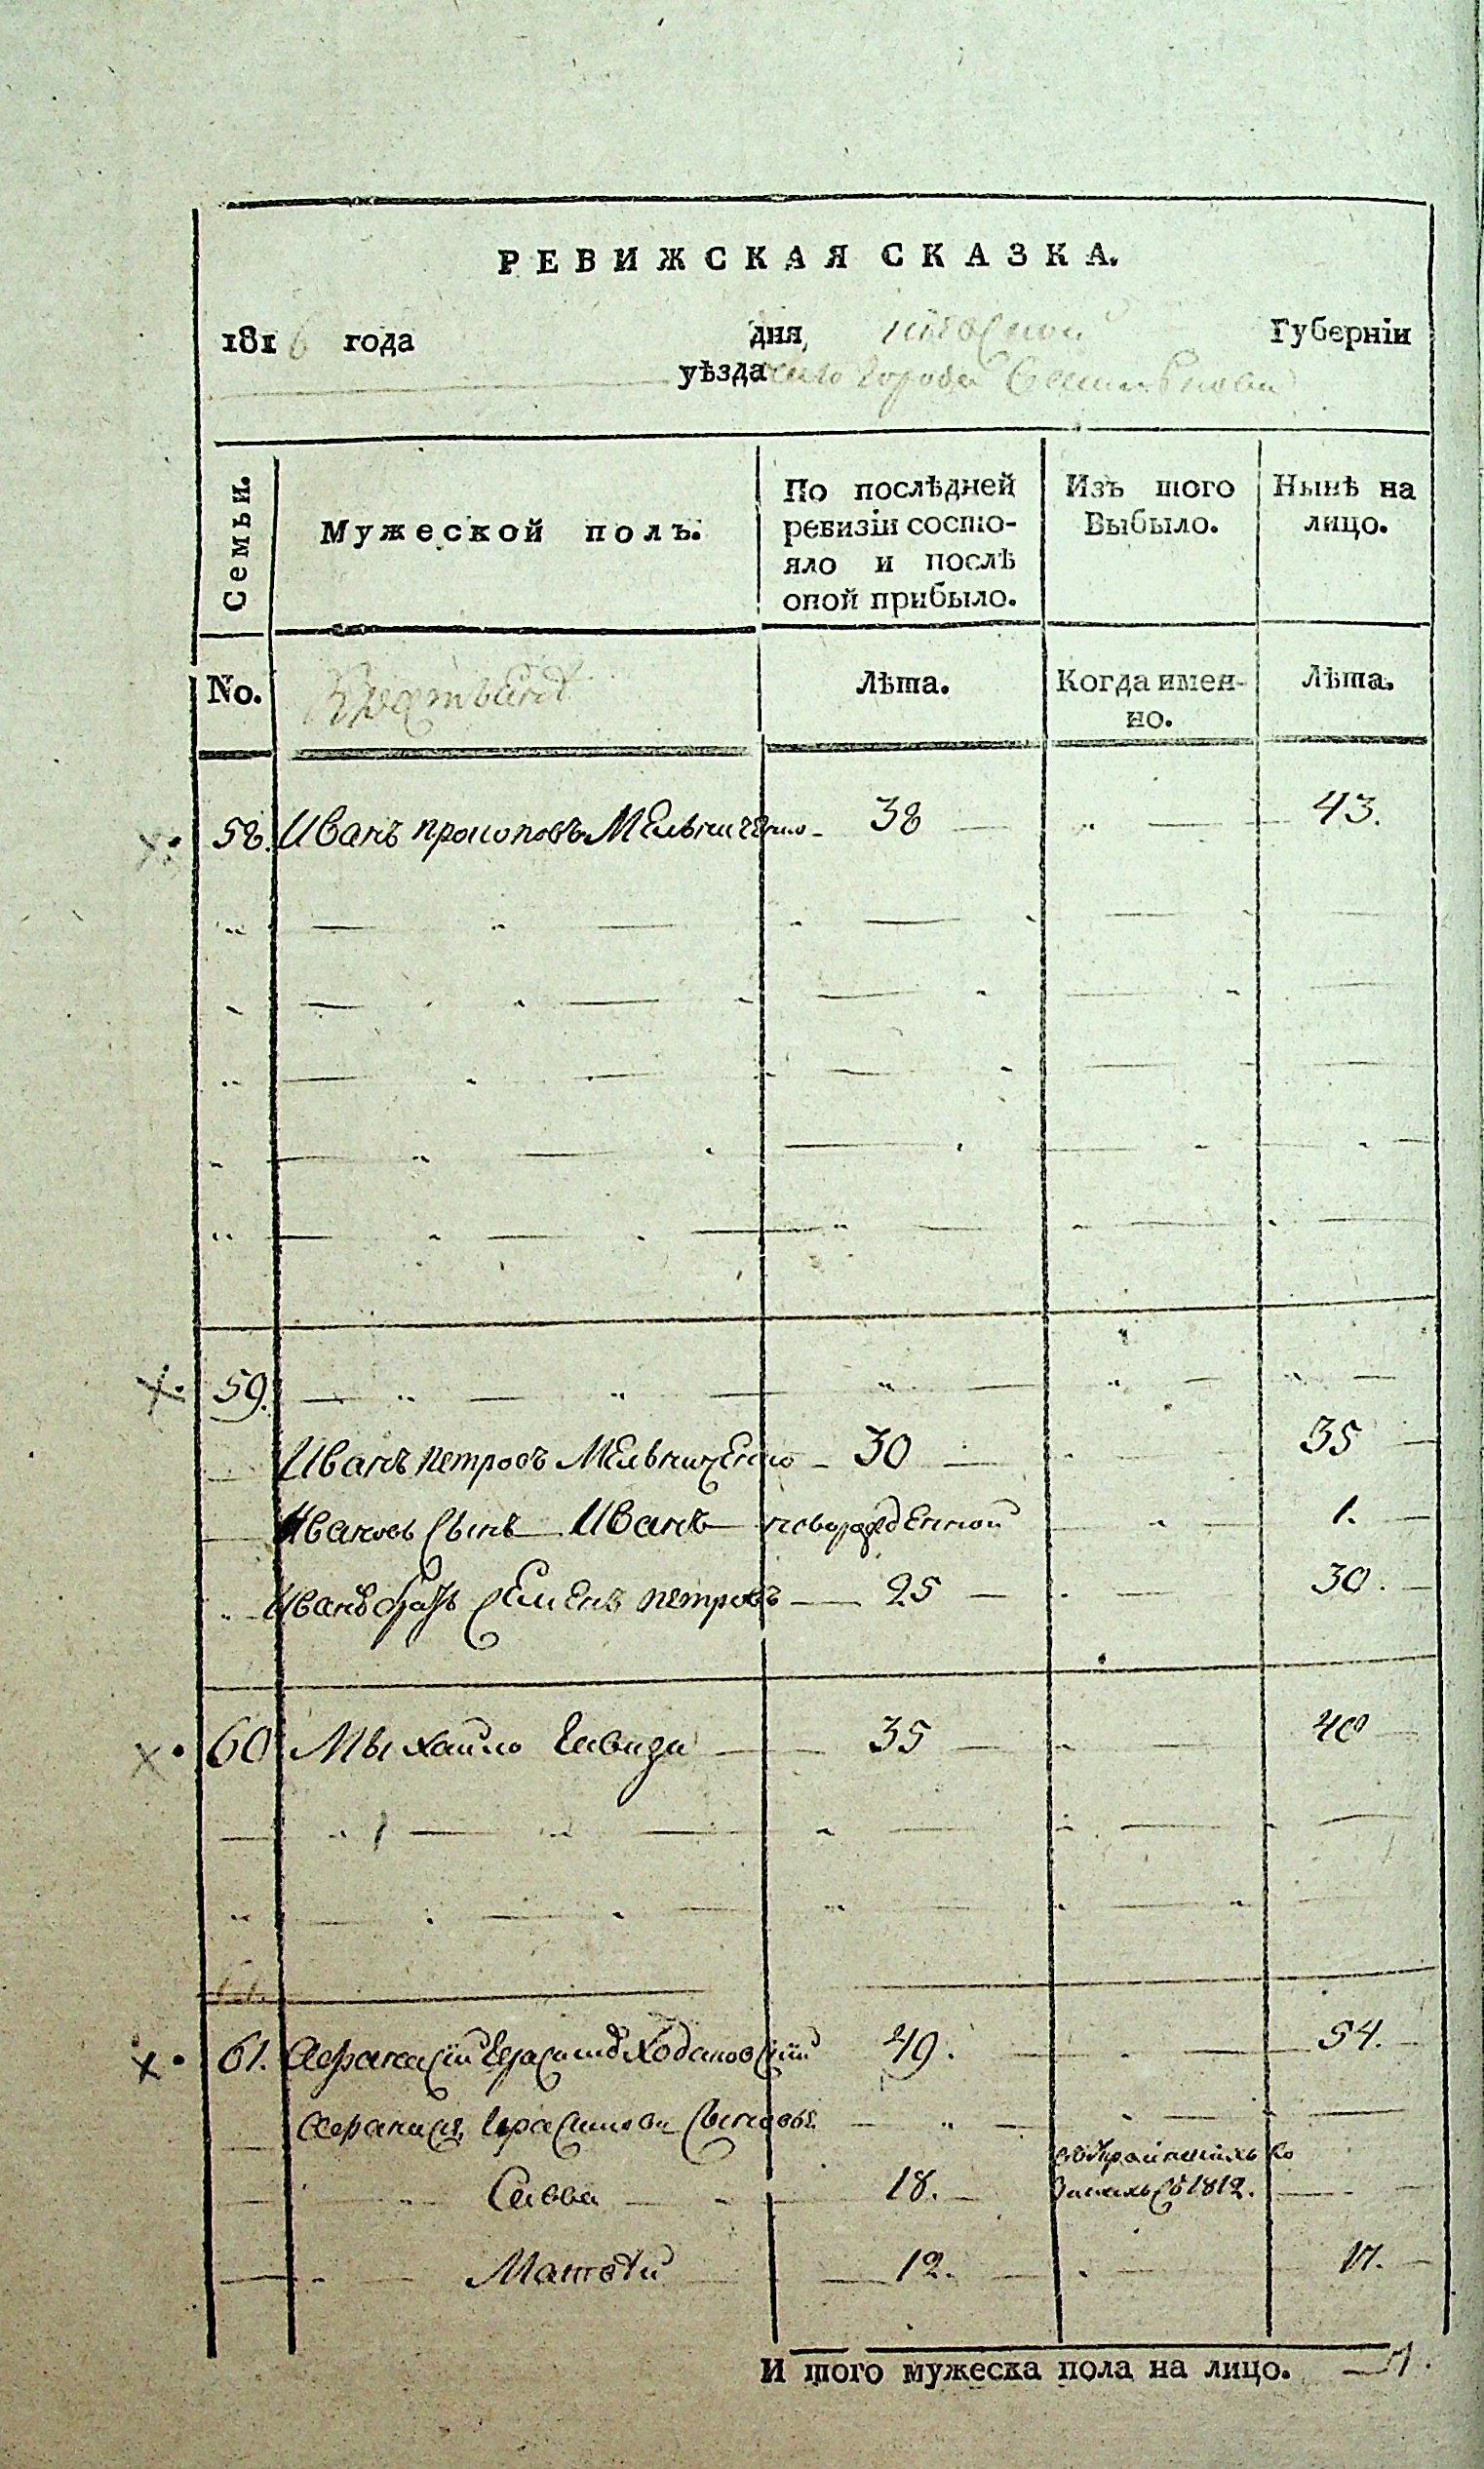 РЕВИЖСКАЯ СКАЗКА.
1816 года дня, Киевской Губерніи
уѣзда города
Семьи.
Мужеской полъ.
По послѣдней ревизіи состо-
яло и послѣ
оной прибыло.
Изъ того
Выбыло.
Нынѣ на
лицо.
No.
Лѣта.
Когда имен-
но.
Лѣта.
58. Иванъ Прокоповъ Мельниченко 38 43.
59.
Иванъ Петровъ Мельниченко 30 35
Ивановъ Сынъ Иванъ новорожденной 1.
Иванъ братъ Семенъ Петровъ 25 30.
60 Мыхайло 35 40
61. Афанасій Герасимовъ Ходановскій 49. 54.
Афанасія Герасимова Сыновья
Савва 18. Козакахъ съ 1812.
Матвѣй 12. 17.
И того мужеска пола на лицо. 7.